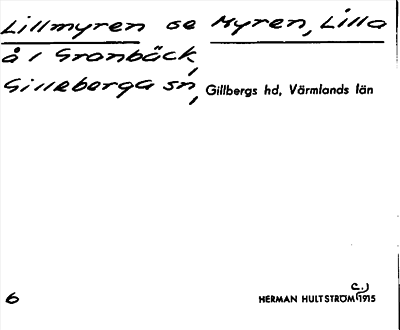 Lillmyren se Myren, Lilla
å i Granbäck,
Gilleberga sn, Gillbergs hd, Värmlands län
6
HERMAN HULTSTRÖM (c.) 1915